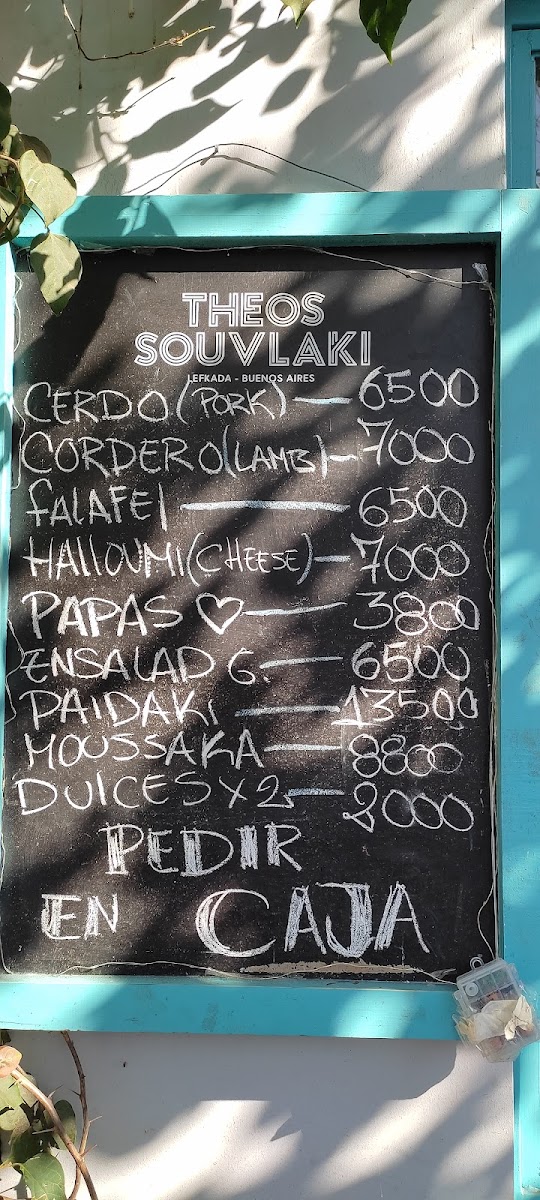 THEOS
SOUVLAKI
LEFKADA - BUENOS AIRES
CERDO (PORK) — 6500
CORDERO (LAMB) — 7000
FALAFEl — 6500
HAllOUMI (CHEESE) — 7000
PAPAS ♡ — 3800
ENSALAD G. — 6500
PAIDAKI — 13500
MOUSSAKA — 8800
DUlCES X 2 — 2000
PEDIR
EN CAJA